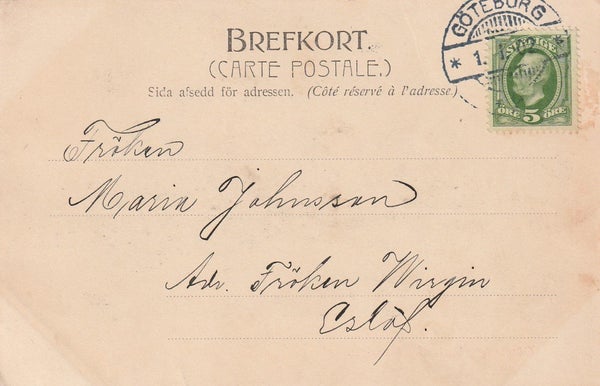 BREFKORT.
(CARTE POSTALE.)
Sida afsedd för adressen. (Côté réservé à l'adresse.)
GÖTEBORG
* 1. 1. 02 *
SVERIGE
ÖRE 5 ÖRE
Fröken
Maria Johnsson
Adr. Fröken Wirgin
Eslöf.